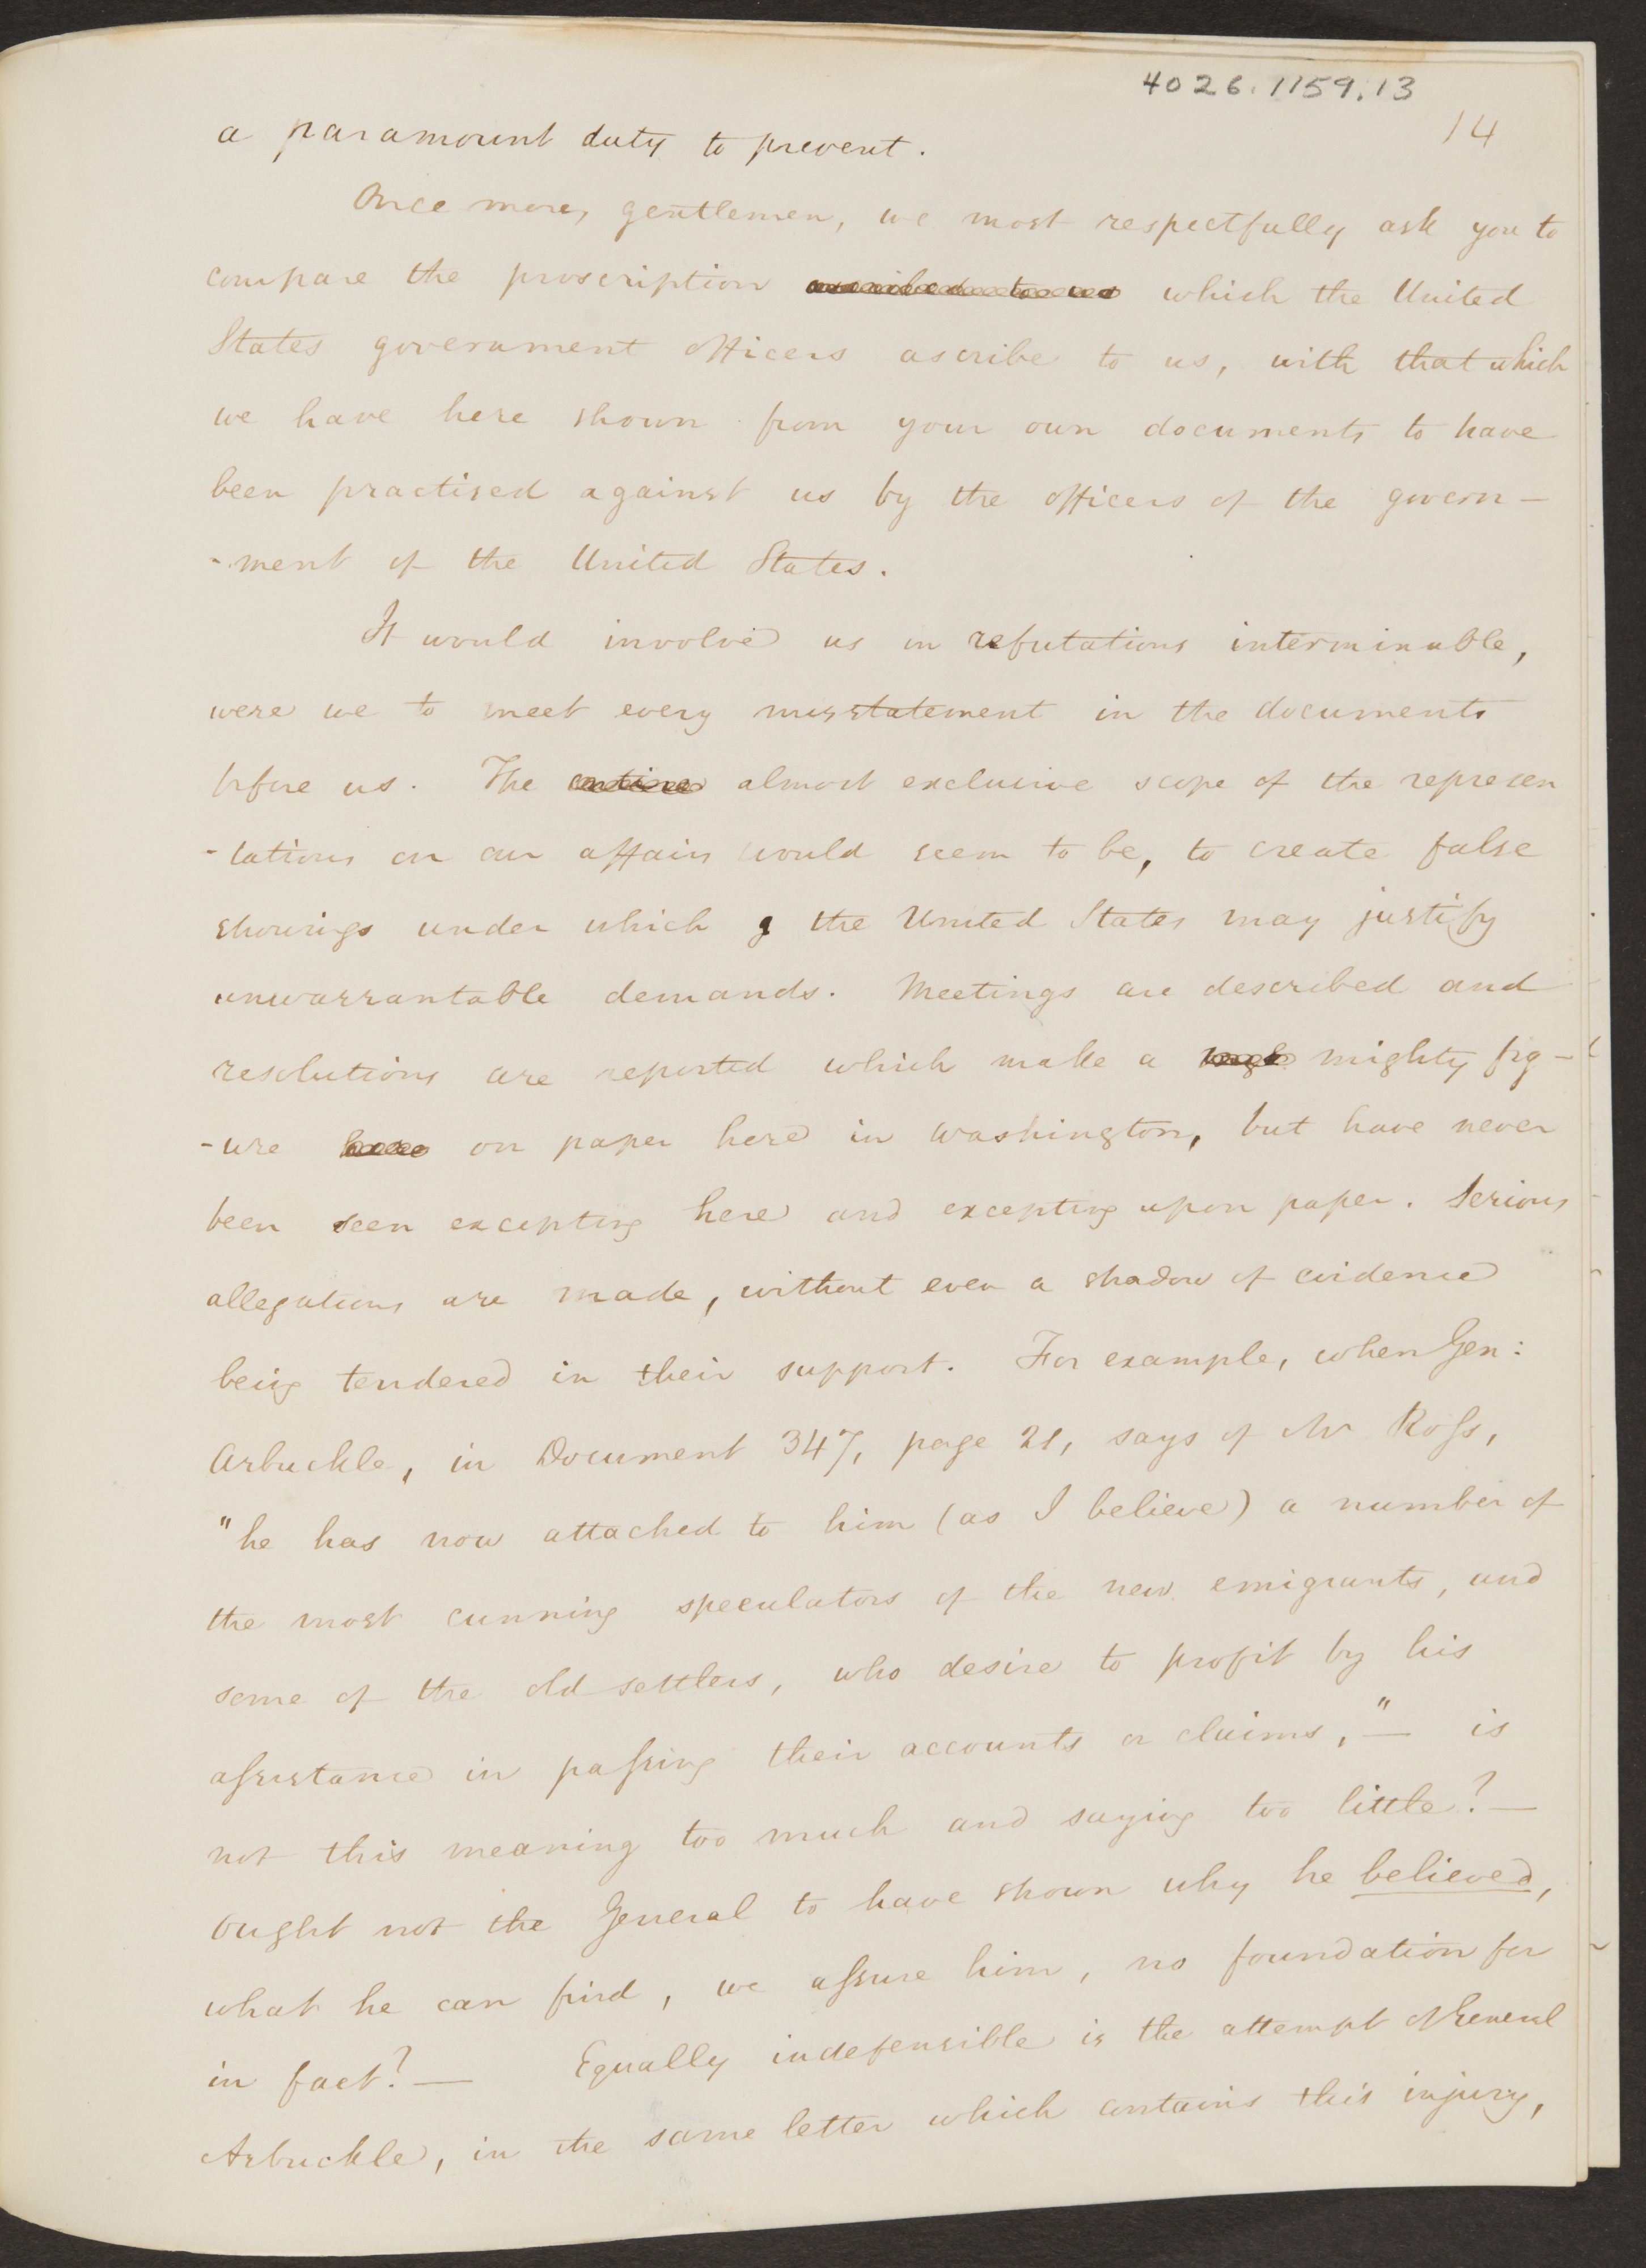 4026.1159.13
14
a paramount duty to prevent.
Once more, gentlemen, we most respectfully ask you to
compare the proscription ascribed to us which the United
States government officers ascribe to us, with that which
we have here shown from your own documents to have
been practised against us by the officers of the govern-
-ment of the United States.
It would involve us in refutations interminable,
were we to meet every misstatement in the documents
before us. The entire almost exclusive scope of the represen
-tations on our affairs would seem to be, to create false
showings under which the United States may justify
unwarrantable demands. Meetings are described and
resolutions are reported which make a mighty fig-
-ure here on paper here in Washington, but have never
been seen excepting here and excepting upon paper. Serious
allegations are made, without even a shadow of evidence
being tendered in their support. For example, when Gen:
Arbuckle, in Document 347, page 21, says of Mr Ross,
"he has now attached to him (as I believe) a number of
the most cunning speculators of the new emigrants, and
some of the old settlers, who desire to profit by his
assistance in passing their accounts or claims,"— is
not this meaning too much and saying too little?—
ought not the General to have shown why he believed,
what he can find, we assure him, no foundation for
in fact?— Equally indefensible is the attempt of General
Arbuckle, in the same letter which contains this injury,